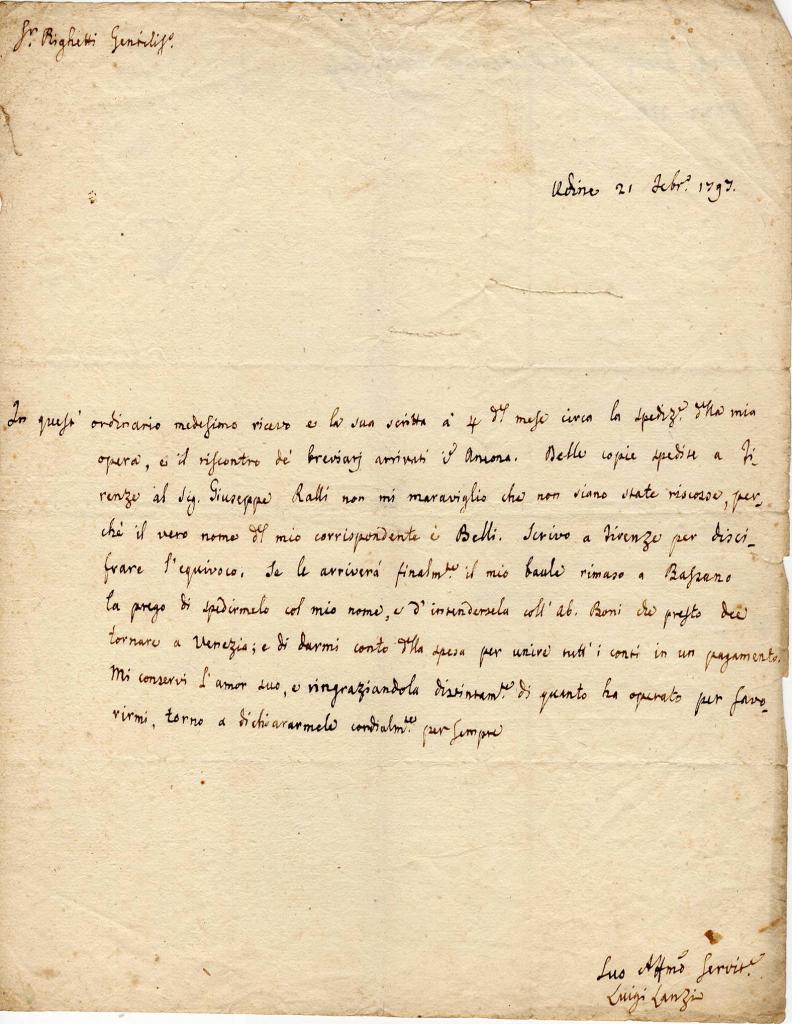 Sr. Righetti Gentiliso.
Udine 21 Febro. 1797.
In quest' ordinario medesimo ricevo e la sua scritta a' 4 del mese circa la spedize. della mia
opera, e il riscontro de' breviarj arrivati in Ancona. Delle copie spedite a Fi-
renze al Sig. Giuseppe Ralli non mi maraviglio che non siano state riscosse, per-
chè il vero nome del mio corrispondente è Belli. Scrivo a Firenze per disci-
frare l'equivoco. Se le arriverá finalmte. il mio baule rimaso a Bassano
la prego di spedirmelo col mio nome, e d'intendersela coll' Ab. Boni che presto dee
tornare a Venezia; e di darmi conto della spesa per unire tutt' i conti in un pagamento.
Mi conservi l'amor suo, e ringraziandola distintamte. di quanto ha operato per favo-
rirmi, torno a dichiararmele cordialmte. per sempre
Suo Affmo Servite.
Luigi Lanzi